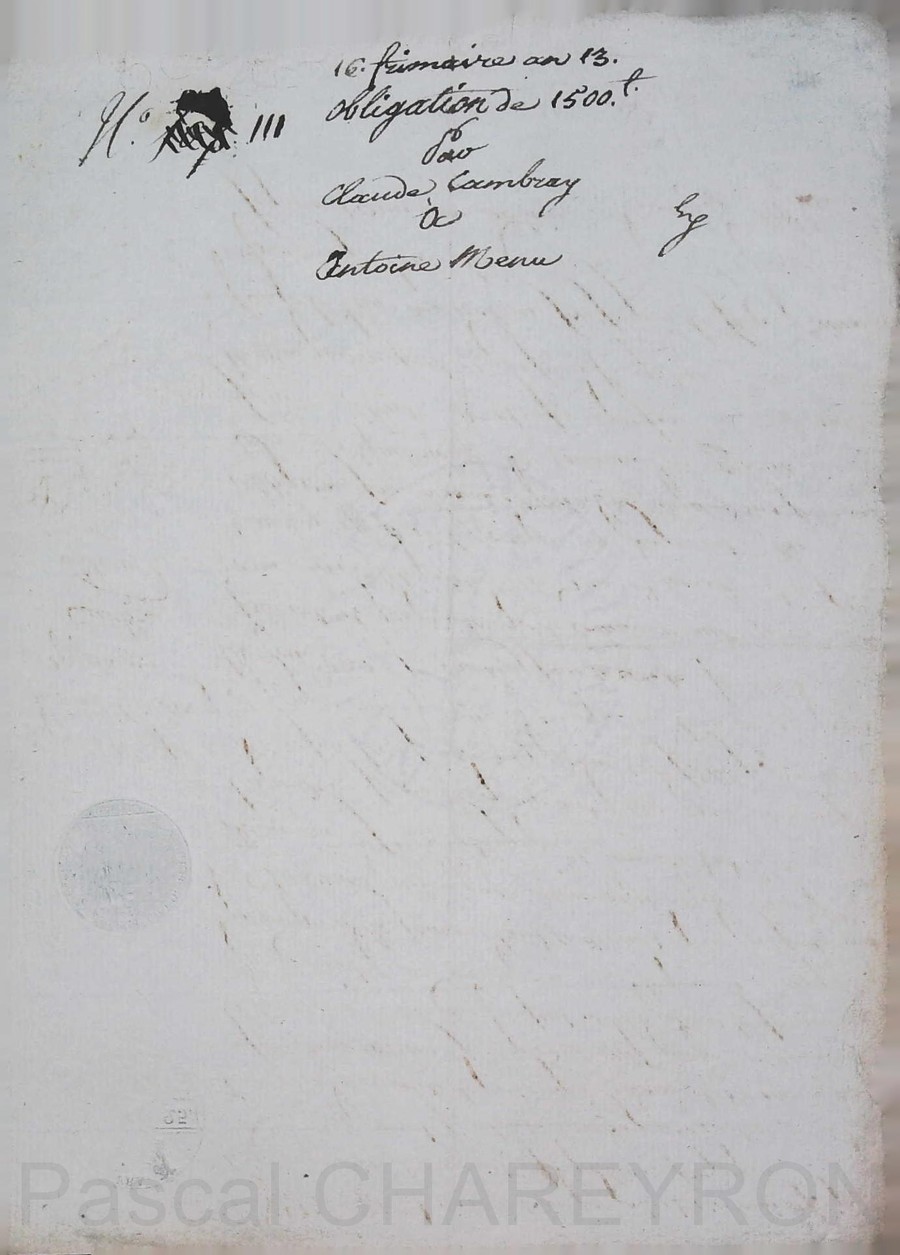 16. frimaire an 13.
N.o 111 obligation de 1500.t
Par
Claude Cambray
à
Antoine Menu
25
Pascal CHAREYRON